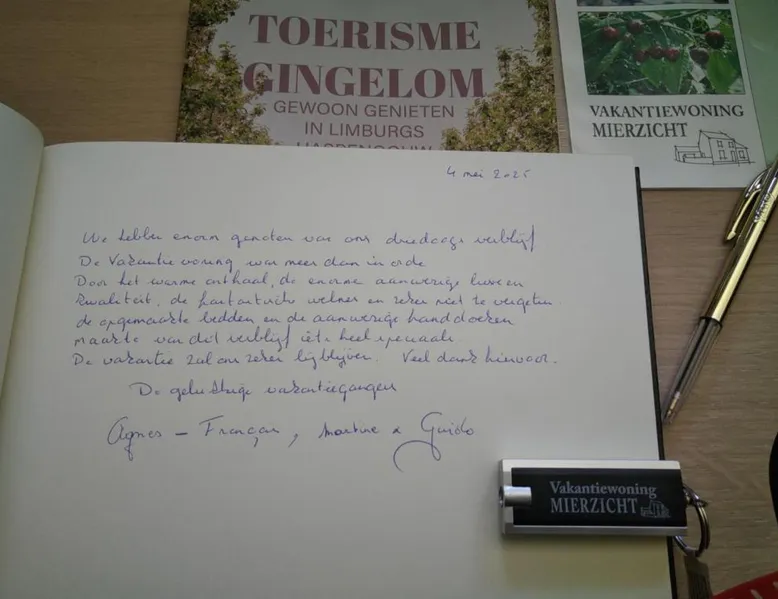 TOERISME
GINGELOM
GEWOON GENIETEN
IN LIMBURGS
HASPENGOUW
VAKANTIEWONING
MIERZICHT
4 mei 2025
We hebben enorm genoten van ons driedaags verblijf
De vakantiewoning was meer dan in orde
Door het warme onthaal, de enorme aanwezige luxe en
kwaliteit, de fantastische welness en zeker niet te vergeten
de opgemaakte bedden en de aanwezige handdoeken
maakte van dit verblijf iets heel speciaals
De vakantie zal ons zeker bijblijven. Veel dank hiervoor.
De gelukkige vakantiegangers
Agnes - François, Martine & Guido
Vakantiewoning
MIERZICHT